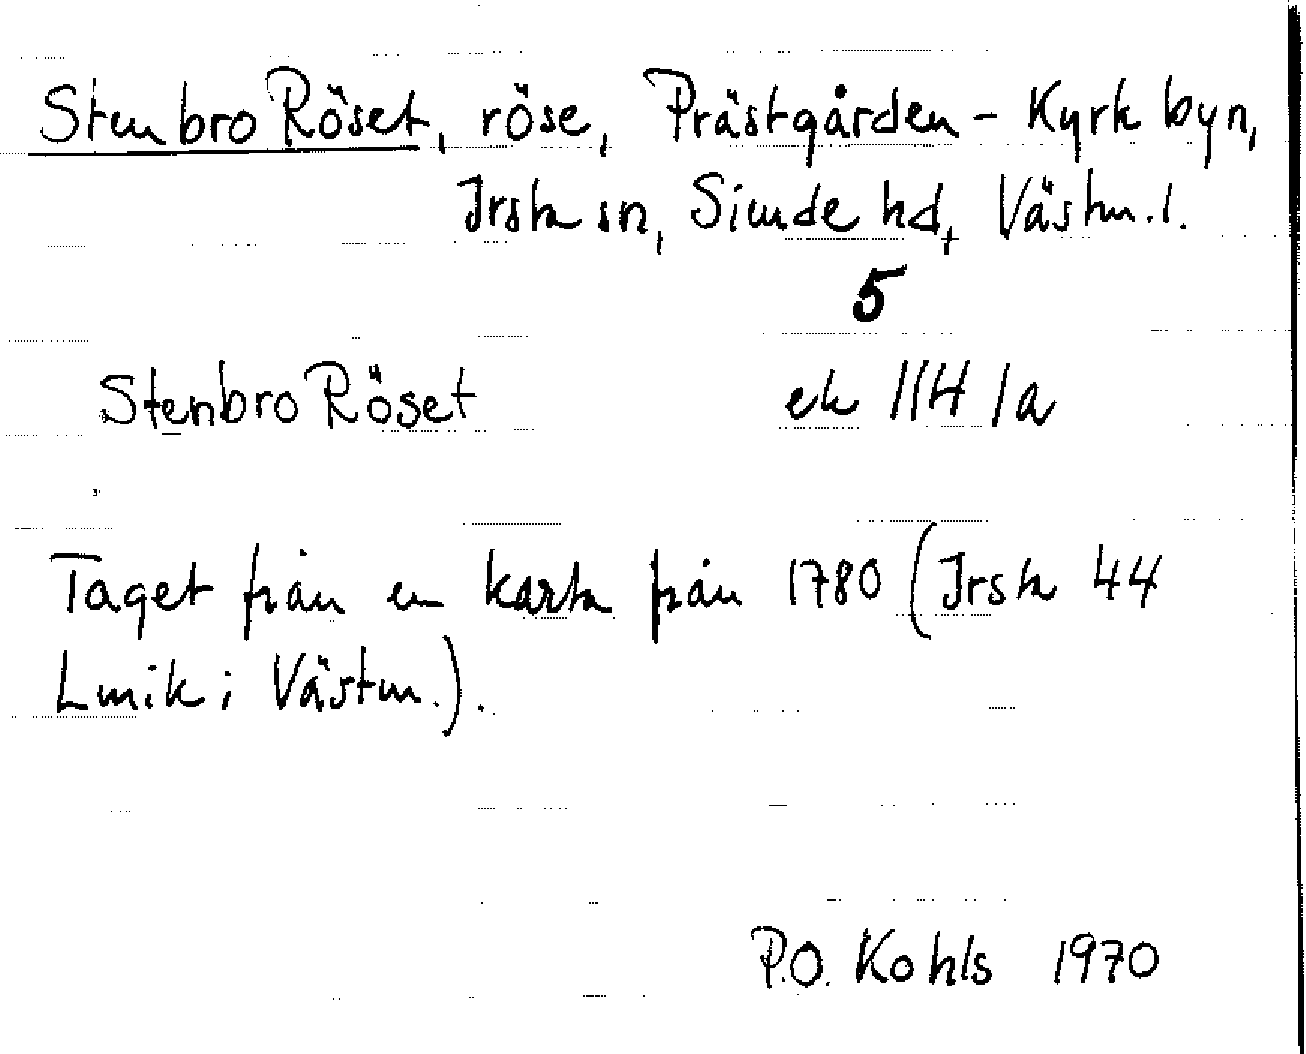 Stenbro Röset, röse, Prästgården - Kyrkbyn,
Irsta sn, Siende hd, Västm. l.
5
Stenbro Röset ek 11H 1a
Taget från en karta från 1780 (Irsta 44
Lmik i Västm.).
P.O. Kohls 1970